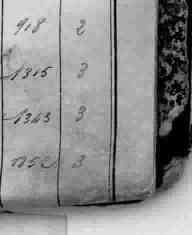 918 2
1315 3
1343 3
1352 3